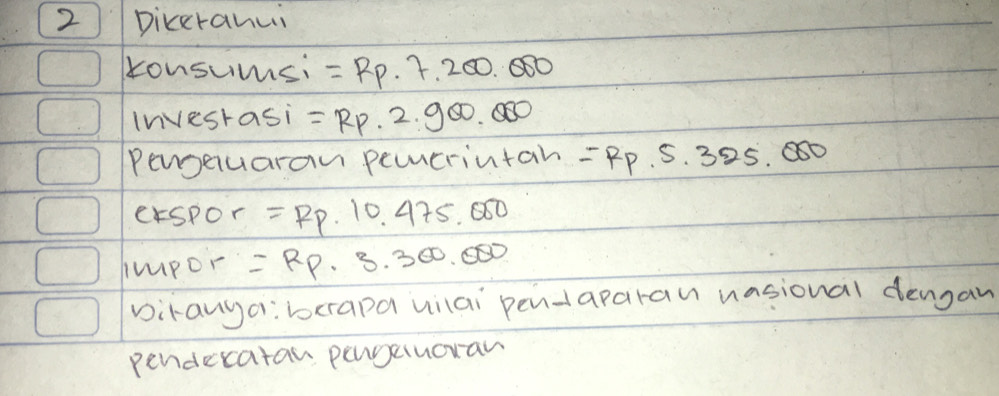 2 Diketahui
Konsumsi = Rp. 7.200.000
Investasi = Rp. 2.900.000
Pengeluaran pemerintah = Rp. 5.325.000
ekspor = Rp. 10.475.000
impor = Rp. 3.300.000
Ditanya: berapa nilai pendapatan nasional dengan
pendekatan pengeluaran